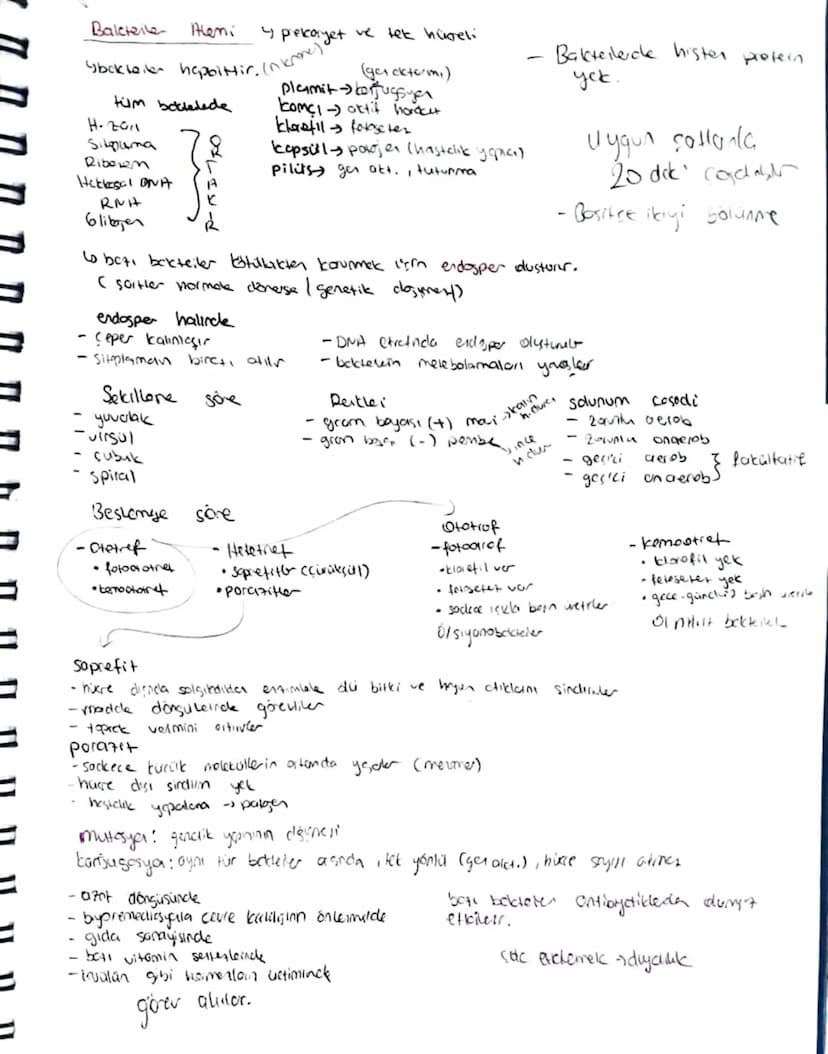 Bakteriler Alemi ↳ prokaryot ve tek hücreli
↳ bakteriler haploittir. (n kromo)
- Bakterilerde histon protein
yok.
(gen aktarımı)
plazmit → konjugasyon
kamçı → aktif hareket
klorofil → fotosentez
kapsül → patojen (hastalık yapıcı)
pilus → gen akt., tutunma
tüm bakterilerde
H. zarı
Sitoplazma
Ribozom
Halkasal DNA
RNA
Glikojen
O
R
T
A
K
T
I
R
Uygun şartlarda
20 dak'
- Basitçe ikiye bölünme
↳ bazı bakteriler kötülükten korunmak için endospor oluşturur.
( şartlar normale dönerse / genetik
endospor halinde
- Çeper kalınlaşır
- Sitoplazmanın birazı atılır
- DNA etrafında endospor oluşturulur
- bakterilerin metabolamaları yavaşlar
Şekillerine göre
- yuvarlak
- virgül
- çubuk
- spiral
Renkleri
- gram boyası (+) mavi → kalın
- gram boyası (-) pembe → ince
solunum çeşidi
- zorunlu aerob
- zorunlu anaerob
- geçici aerob } fakültatif
- geçici anaerob
Beslenmeye göre
- Ototrof
• fotoototrof
• kemoototrof
- Heterotrof
• saprofitler (çürükçül)
• parazitler
Ototrof
- fotoototrof
• klorofil var
• fotosentez var
• sadece ışıkla besin üretirler
Ö/ siyanobakteriler
- kemoototrof
• klorofil yok
• fotosentez yok
• gece-gündüz besin üretir
Ö/ nitrit bakterileri
Saprofit
- hücre dışında salgıladıkları enzimlerle ölü bitki ve hayvan atıklarını sindirirler
- madde döngülerinde görevliler
- toprak verimini artırırlar
parazit
- sadece küçük moleküllerin ortamda yaşarlar (monomer)
- hücre dışı sindirim yok
• hastalık yapanlara → patojen
Mutasyon: genetik yapının değişmesi
Konjugasyon: aynı tür bakteriler arasında, tek yönlü (gen akt.), hücre sayısı artmaz
- azot döngüsünde
- byoremediasyonla çevre kirliliğinin önlenmesinde
- gıda sanayisinde
- bazı vitamin sentezlerinde
- insülin gibi hormonların üretiminde
görev alırlar.
bazı bakteriler antibiyotiklerden
etkilenir.
→ duyarlılık